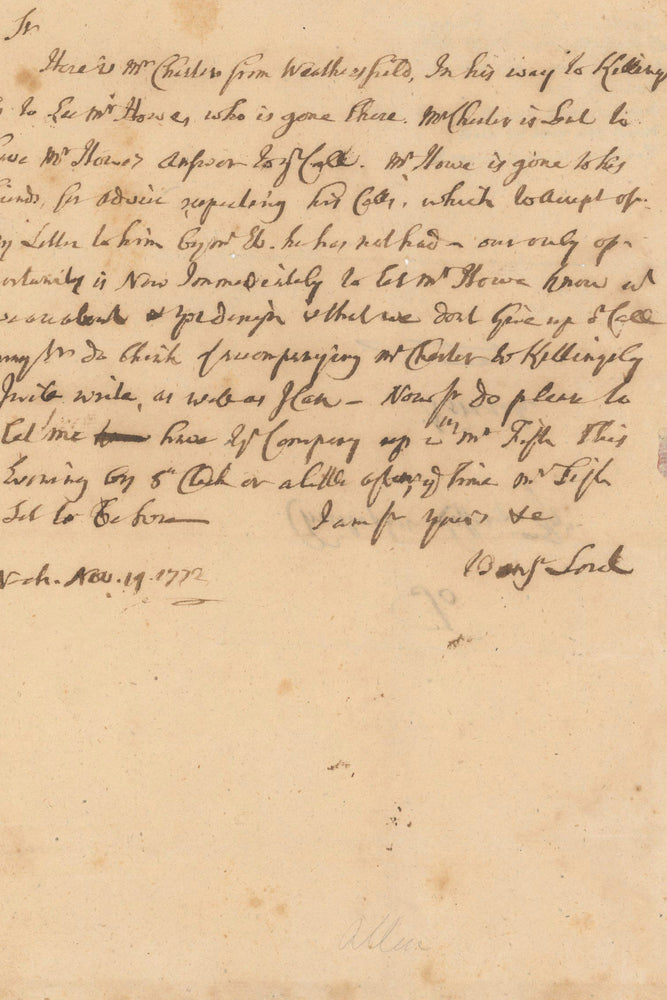 Sr
Here is Mr Chester from Weathersfield, In his way to Killing
to See Mr Howe, who is gone there. Mr Chester is Sent to
Mr Howes Answer to yr Call. Mr Howe is gone to his
for advice respecting his Calls, which to Accept of.
Letter to him by Mr he has not had – our only op-
ortunity is Now Immediately to let Mr Howe know wt
we are about & ye design & that we dont Give up ye Call
Sr do think of accompanying Mr Chester to Killingely
write, as well as I Can – Now Sr do please to
Let me have yr Company up with Mr Fish This
Evening by 6 Clock or a little after, ye Time Mr Fish
Set to be here I am Sr yours &c
Benja Lord
N–ch. Nov. 19. 1772
Allen